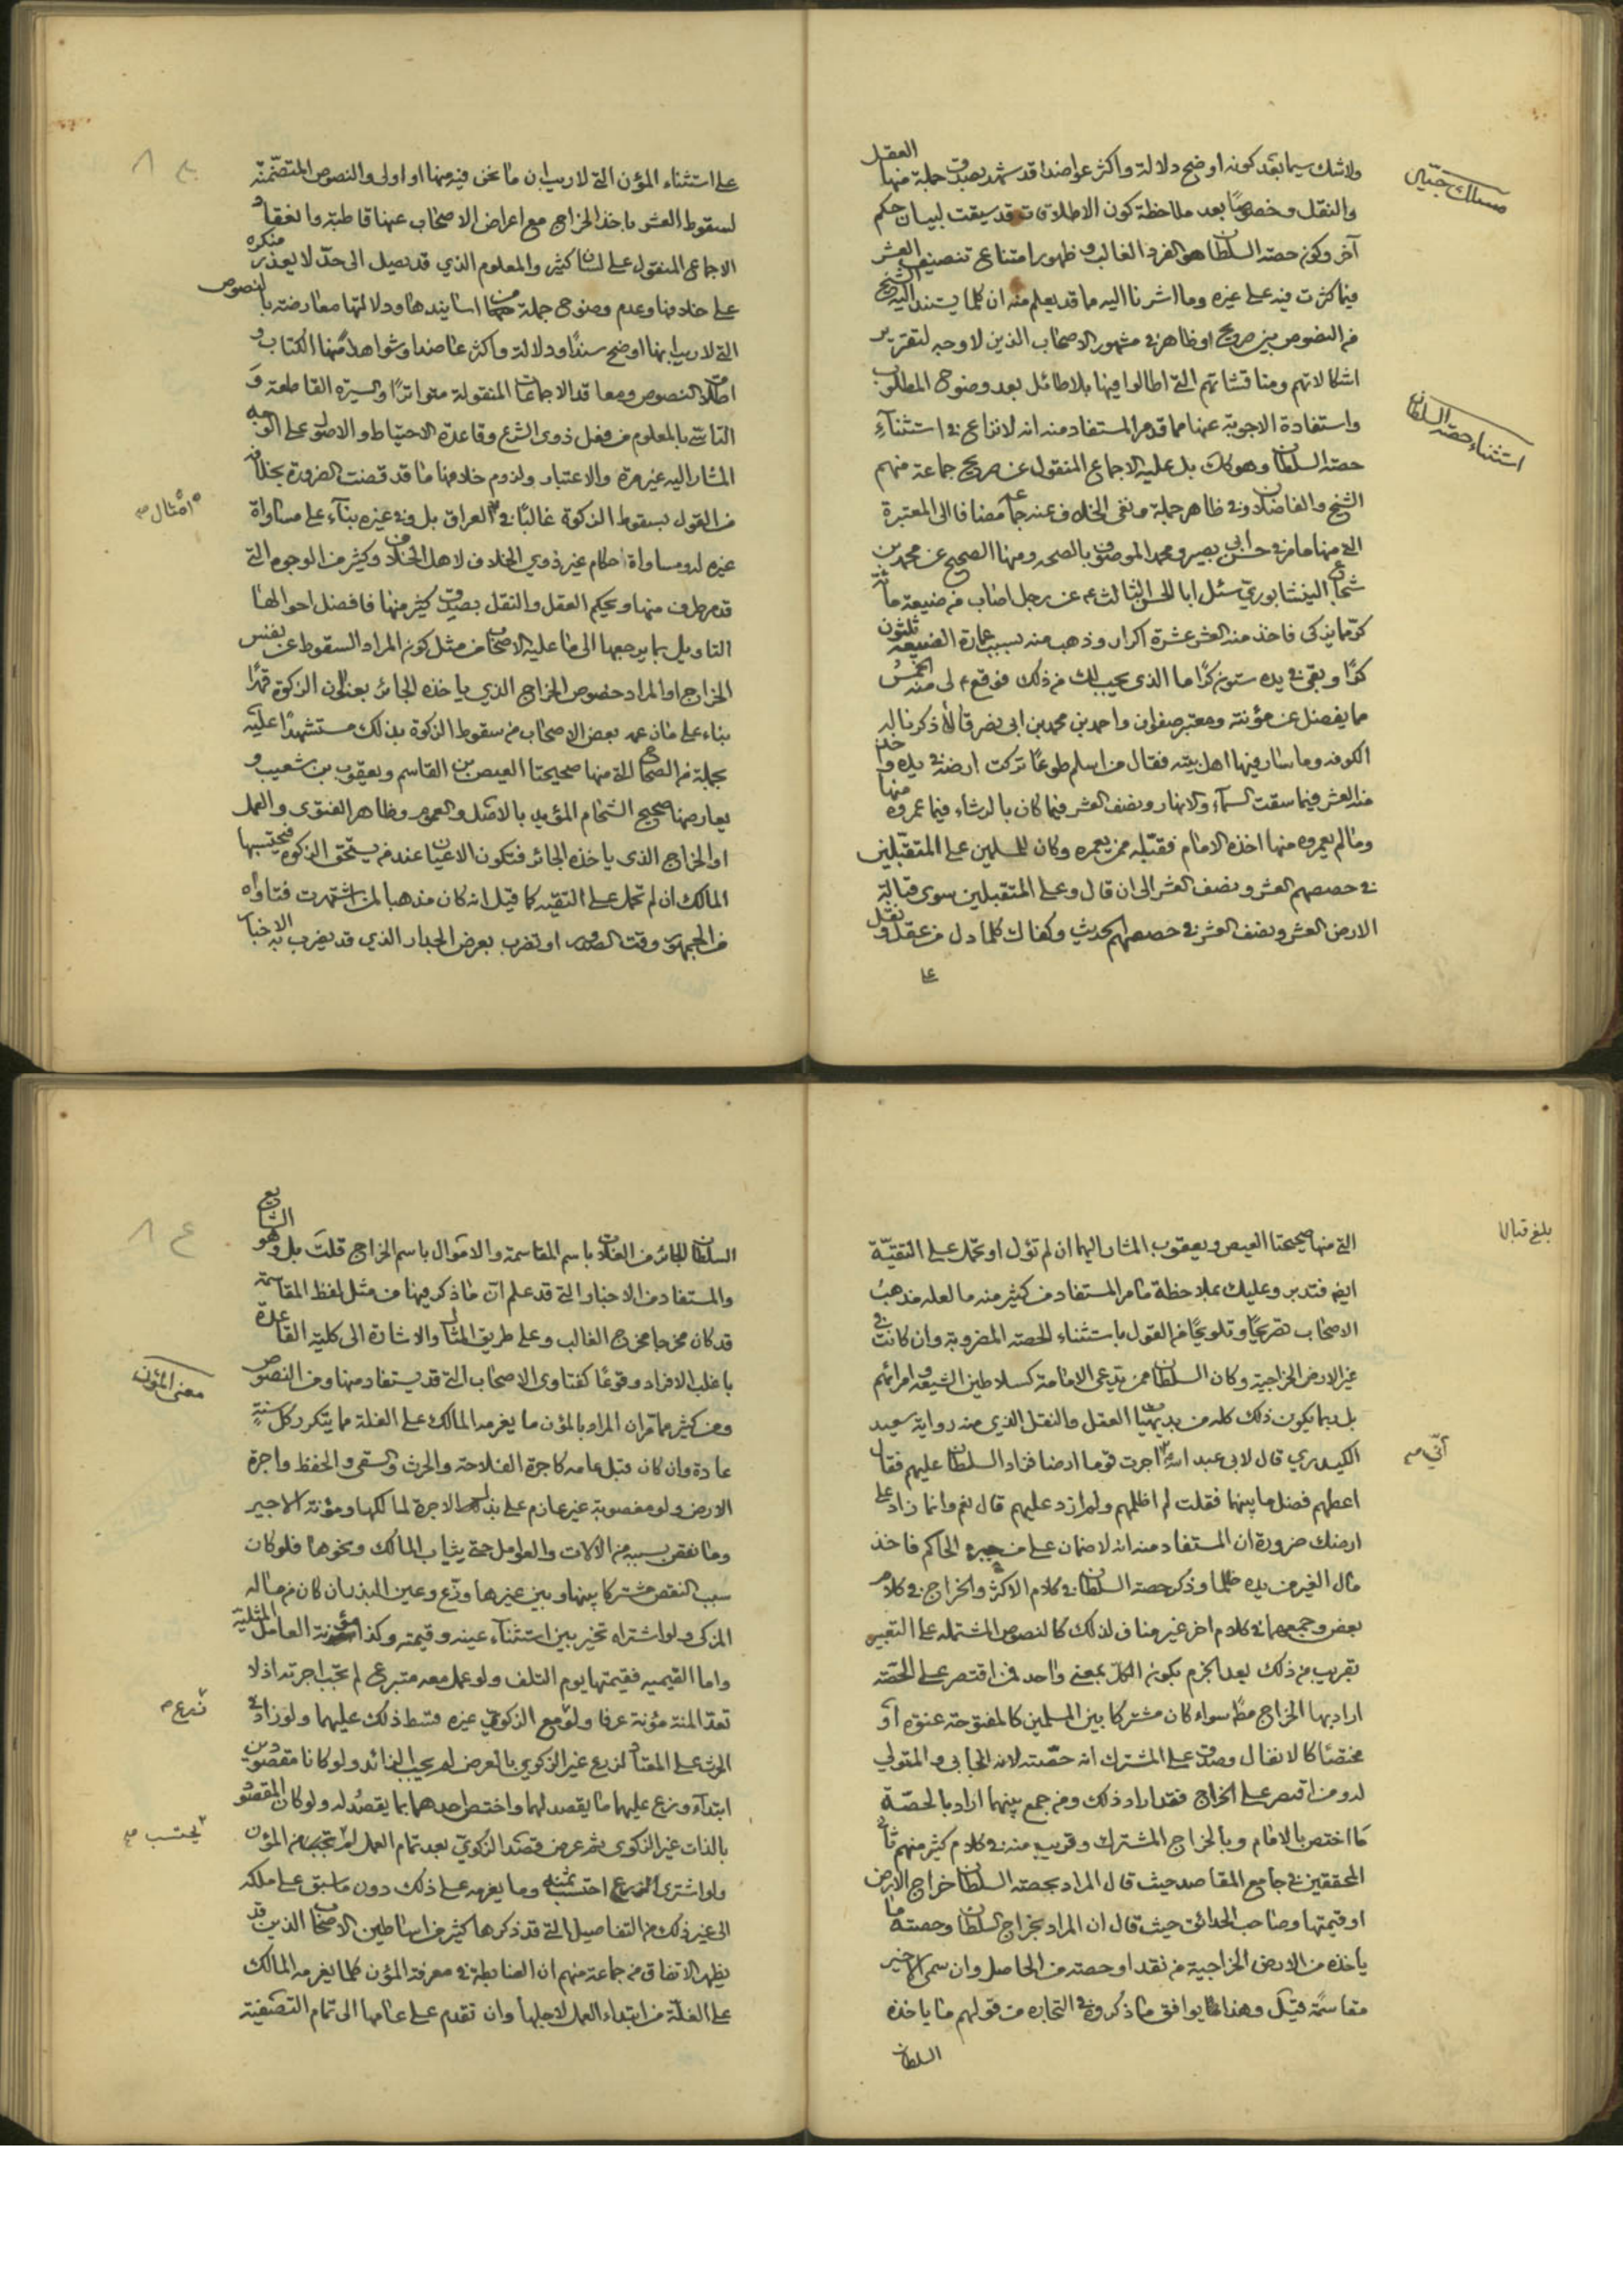 ولا شك سيما بعد كونه اوضح دلالة واكثر عواضدا قد شهد بصدق جملة منها العقل
والنقل وخصوصًا بعد ملاحظة كون الاطلاق قد سيقت لبيان حكم
آخر وكون حصة السلطان هو الفرد الغالب وظهور امتناع تنصيف العشر
فيما كثرت فيه على غيره وما اشرنا اليه ما قد يعلم منه ان كلما يستند اليه الشيخ
من النصوص بين صريح او ظاهر في مشهور الاصحاب الذين لا وجه لتقرير
اشكالاتهم ومناقشاتهم التي اطالوا فيها بلا طائل بعد وضوح المطلوب
واستفادة الاجوبة عنها مما قدمر المستفاد منه انه لا نزاع في استثناء
حصة السلطان وهو كذلك بل عليه الاجماع المنقول عن صريح جماعة منهم
الشيخ والفاضلان وفي ظاهر جملة ونفى الخلاف عنه جماعة مضافا الى المعتبرة
التي منها ما مر في حسن ابي بصير ومحمد الموصوف بالصحه ومنها الصحيح عن محمد بن
شجاع النيشابوري سئل ابا الحسن الثالث ع عن رجل اصاب من ضيعته مائة
كرّ ما يزكى فاخذ منه العشر عشرة اكرار وذهب منه بسبب عمارة الضيعة ثلثون
كرًا وبقى في يده ستون كرًا ما الذى يجب لك من ذلك فوقع ع لى منه الخمسُ
مما يفضل عن مؤنته ومعتبر صفوان واحمد بن محمد بن ابى نصر قالا ذكرنا له
الكوفه وما سار فيها اهل بيته فقال من اسلم طوعًا تركت ارضه في يده واخذ
منه العشر فيما سقت السماء والانهار ونصف العشر فيما كان بالرشاء فيما عمروه منها
وما لم يعمروه منها اخذه الامام فقبّله ممن يعمره وكان للمسلمين على المتقبّلين
في حصصهم العشر ونصف العشر الى ان قال وعلى المتقبلين سوى قبالة
الارض العشر ونصف العشر في حصصهم الحديث وكفاك كلما دل من عقل ونقل
على
استثناء حصة السلطان
على استثناء المؤن التي لا ريب ان ما نحن فيه منها او اولى والنصوص المتضمّنة
لسقوط العشر باخذ الخراج مع اعراض الاصحاب عنها قاطبة وانعقاد
الاجماع المنقول على لسان كثير والمعلوم الذي قد يصل الى حدّ لا يعذر منكره
على خلافها وعدم وضوح جملة من اسانيدها ودلالتها معارضة بالنصوص
التي لا ريب انها اوضح سندًا ودلالة واكثر عاضدا وشواهد منها الكتاب و
اطلاق النصوص ومعاقد الاجماعات المنقولة متواترًا والسيرة القاطعة و
التاسي بالمعلوم من فعل ذوى الشرع وقاعدة الاحتياط والاصول على الوجه
المشار اليه غير مرة والاعتبار ولزوم خلافها ما قد قضت الضرورة بخلافه
من القول بسقوط الزكوة غالبًا في العراق بل وفي غيره بناء على مساواة
امثال صح
غيره له ومساواة احكام غير ذوي الخلاف لاهل الخلاف وكثير من الوجوه التي
قد مر طرف منها ويحكم العقل والنقل بصدق كثير منها فافضل احوالها
التاويل بما يرجعها الى ما عليه الاصحاب من مثل كون المراد السقوط عن نفس
الخراج او المراد خصوص الخراج الذي ياخذه الجائر بعنوان الزكوة قهرًا
بناء على ما زعمه بعض الاصحاب من سقوط الزكوة بذلك مستشهدًا عليه
بجملة من الصحاح التي منها صحيحتا العيص بن القاسم ويعقوب بن شعيب و
يعارضها صحيح الشحام المؤيد بالاصل والعموم وظاهر الفتوى والعمل
او الخراج الذى ياخذه الجائر فتكون الاعيان عند من يستحق الزكوة فيحتسبها
المالك ان لم تحمل على التقيّة كما قيل انه كان مذهبا لمن اشتهرت فتاواه
من الجمهور وقت الصدور او تضرب بعرض الجدار الذي قد يضرب به الاخبار
بلغ قبالا
التي منها صحيحتا العيص ويعقوب المشار اليهما ان لم تؤل او تحمل على التقيّة
ايضا فتدبر وعليك بملاحظة ما مر المستفاد من كثير منه ما لعله مذهبُ
الاصحاب تصريحًا وتلويحًا من القول باستثناء الحصة المضروبة وان كانت في
غير الارض الخراجية وكان السلطان ممن يدعى الامامة كسلاطين الشيعة وامرائهم
بل ربما يكون ذلك كله من بديهيات العقل والنقل الذي منه رواية سعيد
الكيدري قال لابى عبد الله ع اجرت قوما ارضا فزاد السلطان عليهم فقال
انّي صح
اعطهم فضل ما بينهما فقلت لم اظلمهم ولم ازد عليهم قال نعم وانما زاد على
ارضك ضرورة ان المستفاد منه انه لا ضمان على من جبره الحاكم فاخذ
مال الغير من يده ظلما وذكر حصة السلطان في كلام الاكثر والخراج في كلام
بعض وجمعهما في كلام اخر غير مناف لذلك كالنصوص المشتملة على التعبير
بقريب من ذلك بعد الجزم بكون الكلّ بمعنى واحد فمن اقتصر على الحصّة
اراد بها الخراج مطلقا سواء كان مشتركا بين المسلمين كالمفتوحة عنوة او
مختصًا كالانفال وصدق على المشترك انه حصّته لانه الجابى والمتولي
له ومن اقتصر على الخراج فقد اراد ذلك ومن جمع بينهما اراد بالحصّة
ما اختص بالامام وبالخراج المشترك وقريب منه في كلام كثير منهم ثانى
المحققين في جامع المقاصد حيث قال المراد بحصة السلطان خراج الارض
او قيمتها وصاحب الحدائق حيث قال ان المراد بخراج السلطان وحصته ما
ياخذه من الارض الخراجية من نقد او حصة من الحاصل وان سمى الاخير
مقاسمة قيل وهذا مما يوافق ما ذكروه في التجارة من قولهم ما ياخذه
السلطان
السلطان الجائر من الغلات باسم المقاسمة والاموال باسم الخراج قلت بل وهو الشايع
والمستفاد من الاخبار التي قد علم ان ما ذكر فيها من مثل لفظ المقاسمة
قد كان مخرجا مخرج الغالب وعلى طريق المثال والاشارة الى كلية القاعدة
باغلب الافراد وقوعًا كفتاوى الاصحاب التي قد يستفاد منها ومن النصوص
معنى المؤن
ومن كثير مما مرّ ان المراد بالمؤن ما يغرمه المالك على الغلة مما يتكرر كل سنةٍ
عادة وان كان قبل عامه كاجرة الفلاحة والحرث والسقى والحفظ واجرة
الارض ولو مغصوبة غير عازم على بذل الاجرة لمالكها ومؤنة الاجير
وما نقص بسببه من الآلات والعوامل حتى يثياب المالك ونحوها فلو كان
سبب النقص مشتركا بينها وبين غيرها وزّع وعين البذر ان كان من ماله
المزكى ولو اشتراه تخير بين استثناء عينه وقيمته وكذا مؤنة العامل المثلية
واما القيميه فقيمتها يوم التلف ولو عمل معه متبرع لم تحتسب اجرته اذ لا
تعدّ المنة مؤنة عرفا ولو زرع مع الزكوي غيره قسط ذلك عليهما ولو زاد في
زرع صح
الحرث على المعتاد لزرع غير الزكوي بالعرض لم يحتسب الزائد ولو كانا مقصودين
ابتداء وزع عليهما ما يقصد لهما واختص احدهما بما يقصد له ولو كان المقصود
بالذات غير الزكوى ثم عرض قصد الزكويّ بعد تمام العمل لم يحتسب من المؤن
يحتسب صح
ولو اشترى الزرع احتسب ثمنه وما يغرمه على ذلك دون ما سبق على ملكه
الى غير ذلك من التفاصيل التي قد ذكرها كثير من اساطين الاصحاب الذين قد
يظهر الاتفاق من جماعة منهم ان الضابطة في معرفة المؤن كلما يغرمه المالك
على الغلّة من ابتداء العمل لاجلها وان تقدم على عامها الى تمام التصفية